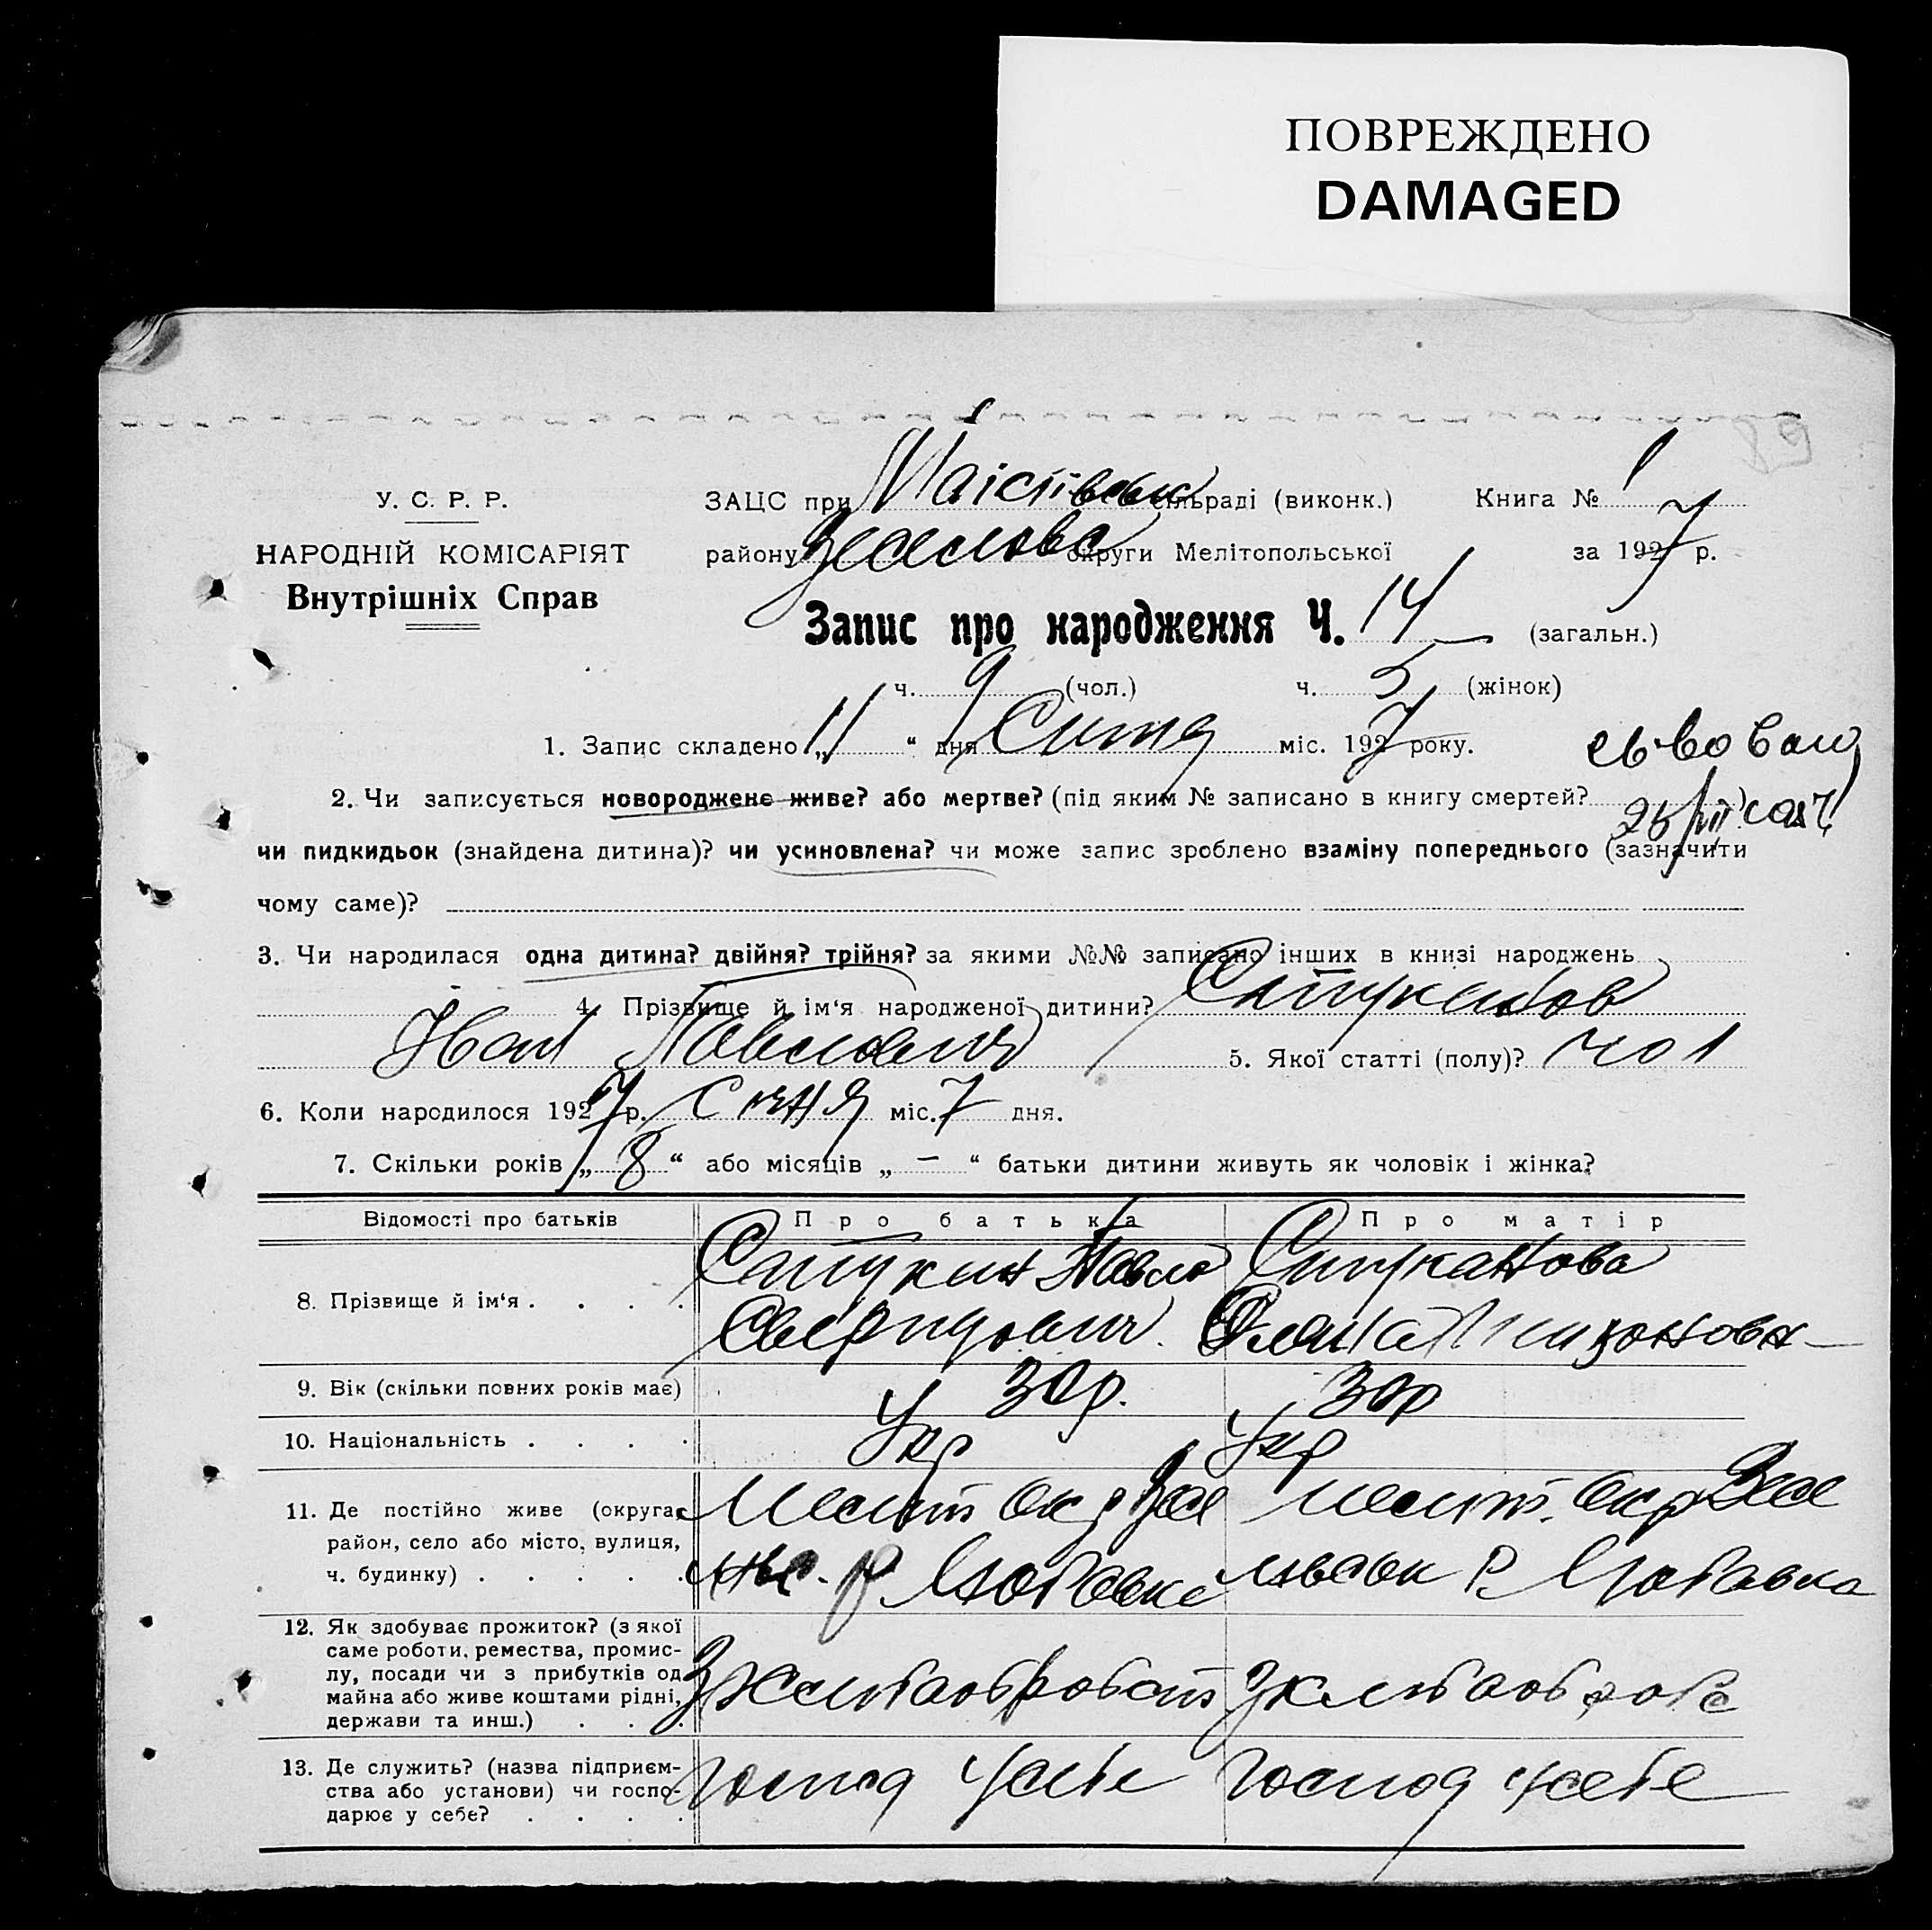 ПОВРЕЖДЕНО
DAMAGED
У. С. Р. Р.
НАРОДНІЙ КОМІСАРІЯТ
Внутрішніх Справ
ЗАЦС при сільраді (виконк.) Книга № 1
району округи Мелітопольської за 1927 р.
Запис про народження Ч. 14 (загальн.)
ч. 9 (чол.) ч. 5 (жінок)
1. Запис складено „ 11 “ дня Січня міс. 1927 року.
2. Чи записується новороджене живе? або мертве? (під яким № записано в книгу смертей? )
чи пидкидьок (знайдена дитина)? чи усиновлена? чи може запис зроблено взаміну попереднього (зазначити
чому саме)?
3. Чи народилася одна дитина? двійня? трійня? за якими №№ записано інших в книзі народжень
4. Прізвище й ім‘я народженої дитини?
Іван Павлович 5. Якої статті (полу)? чол
6. Коли народилося 1927 р. Січня міс. 7 дня.
7. Скільки років „ 8 “ або місяців „ – “ батьки дитини живуть як чоловік і жінка?
Відомості про батьків Про батька Про матір
8. Прізвище й ім‘я . . . . Павло
9. Вік (скільки повних років має) 30р. 30р
10. Національність . . . . Укр Укр
11. Де постійно живе (округа, Меліт окр Меліт. окр
район, село або місто, вулиця,
ч. будинку) . . . . .
12. Як здобуває прожиток? (з якої
саме роботи, ремества, промис-
лу, посади чи з прибутків од
майна або живе коштами рідні,
держави та инш.) . . .
З хлібаобробот З хлібаобробо
13. Де служить? (назва підприєм-
ства або установи) чи госпо-
дарює у себе? . . . .
Господ у себе Господ у себе